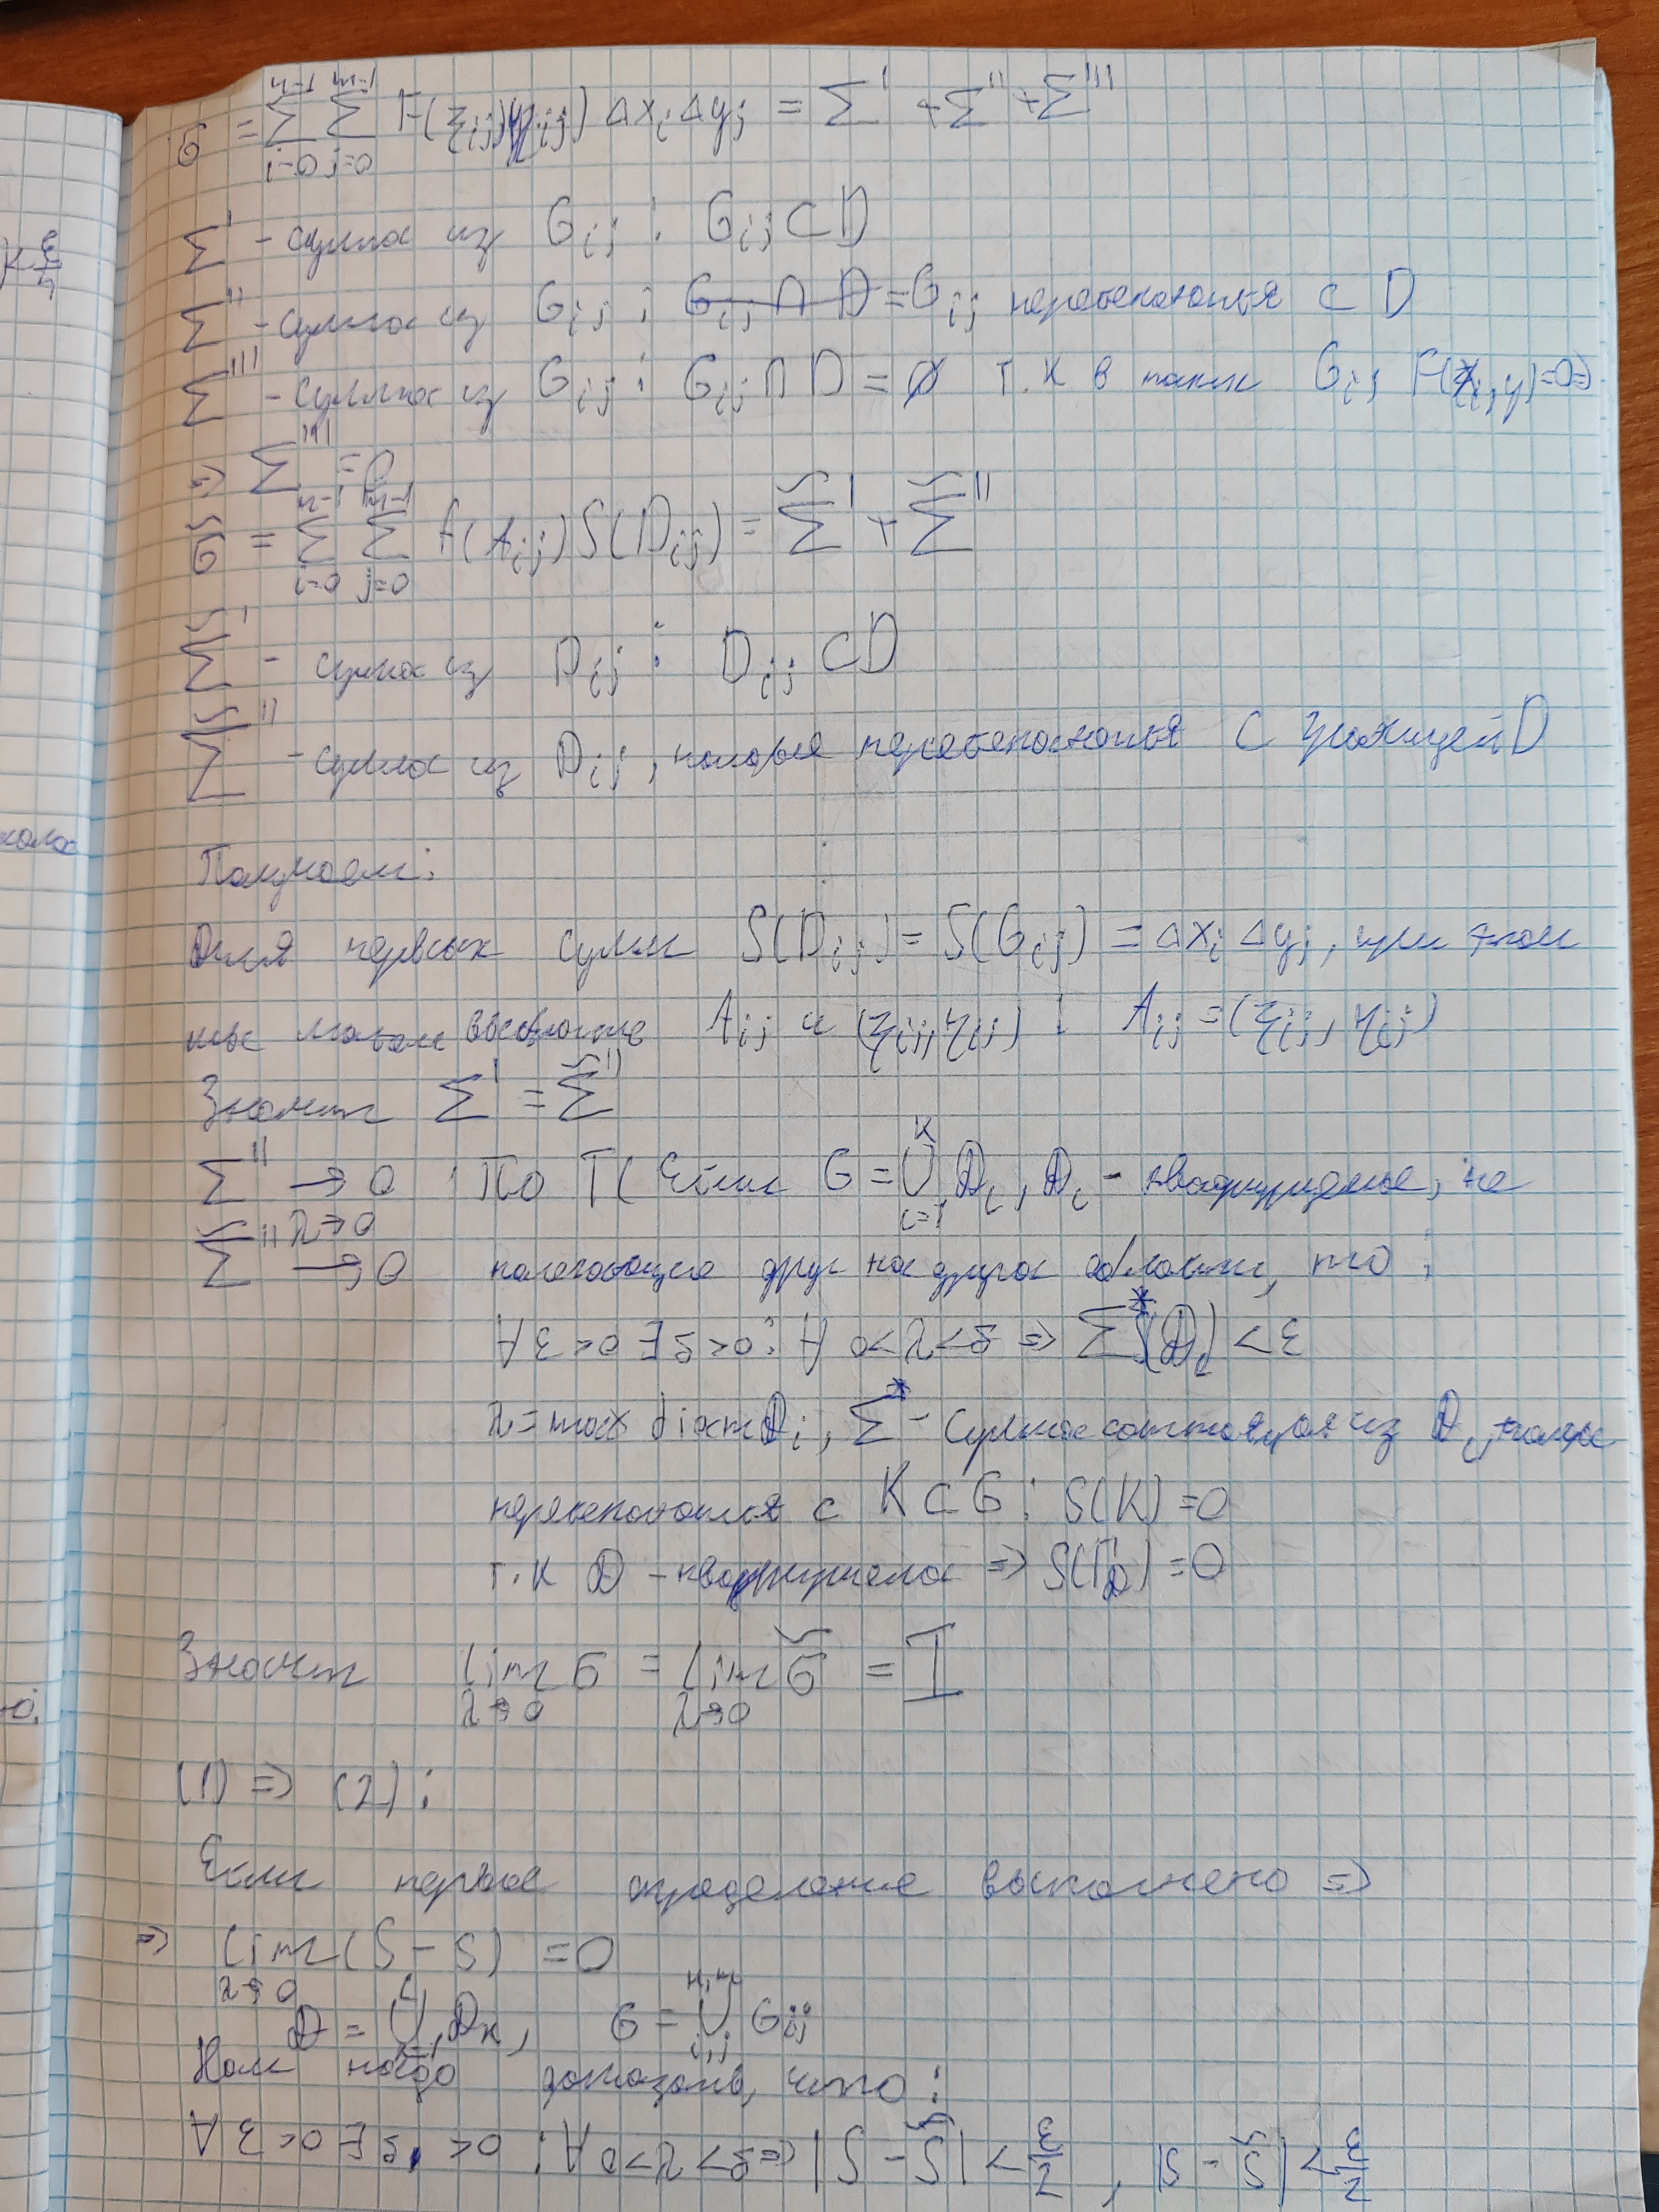 σ = ∑_{i=0}^{n-1} ∑_{j=0}^{m-1} F(ξ_ij, η_ij) Δx_i Δy_j = ∑' + ∑'' + ∑'''
∑' - сумма из G_ij : G_ij ⊂ D
∑'' - сумма из G_ij : G_ij пересекаются с D
∑''' - сумма из G_ij : G_ij ∩ D = ∅ т.к в таких G_ij F(x, y) = 0 ⇒
⇒ ∑''' = 0
σ̃ = ∑_{i=0}^{n-1} ∑_{j=0}^{m-1} f(A_ij) S(D_ij) = ∑̃' + ∑̃''
∑̃' - сумма из D_ij : D_ij ⊂ D
∑̃'' - сумма из D_ij, которые пересекаются с границей D
Получаем:
Для первых сумм S(D_ij) = S(G_ij) = Δx_i Δy_j, при этом
мы можем выбрать A_ij и (ξ_ij, η_ij) : A_ij = (ξ_ij, η_ij)
Значит ∑' = ∑̃'
∑'' → 0 λ→0 : По Т( Если G = ⋃_{i=1}^{K} D_i, D_i - квадрируемые, не
∑̃'' → 0 налегающие друг на друга области, то :
∀ε>0 ∃δ>0 : ∀ 0<λ<δ ⇒ ∑* S(D_i) < ε
λ = max diam D_i, ∑* - сумма состоящая из D_i, которые
пересекаются с K ⊂ G : S(K) = 0
т.к D - квадрируема ⇒ S(Γ_D) = 0
Значит lim_{λ→0} σ = lim_{λ→0} σ̃ = I
(1) ⇒ (2) :
Если первое определение выполнено ⇒
⇒ lim_{λ→0} (S - s) = 0
D = ⋃ D_k, G = ⋃_{i,j}^{n,m} G_ij
Нам надо доказать, что :
∀ε>0 ∃δ>0 : ∀ 0<λ<δ ⇒ |S - S̃| < ε/2 , |s - s̃| < ε/2